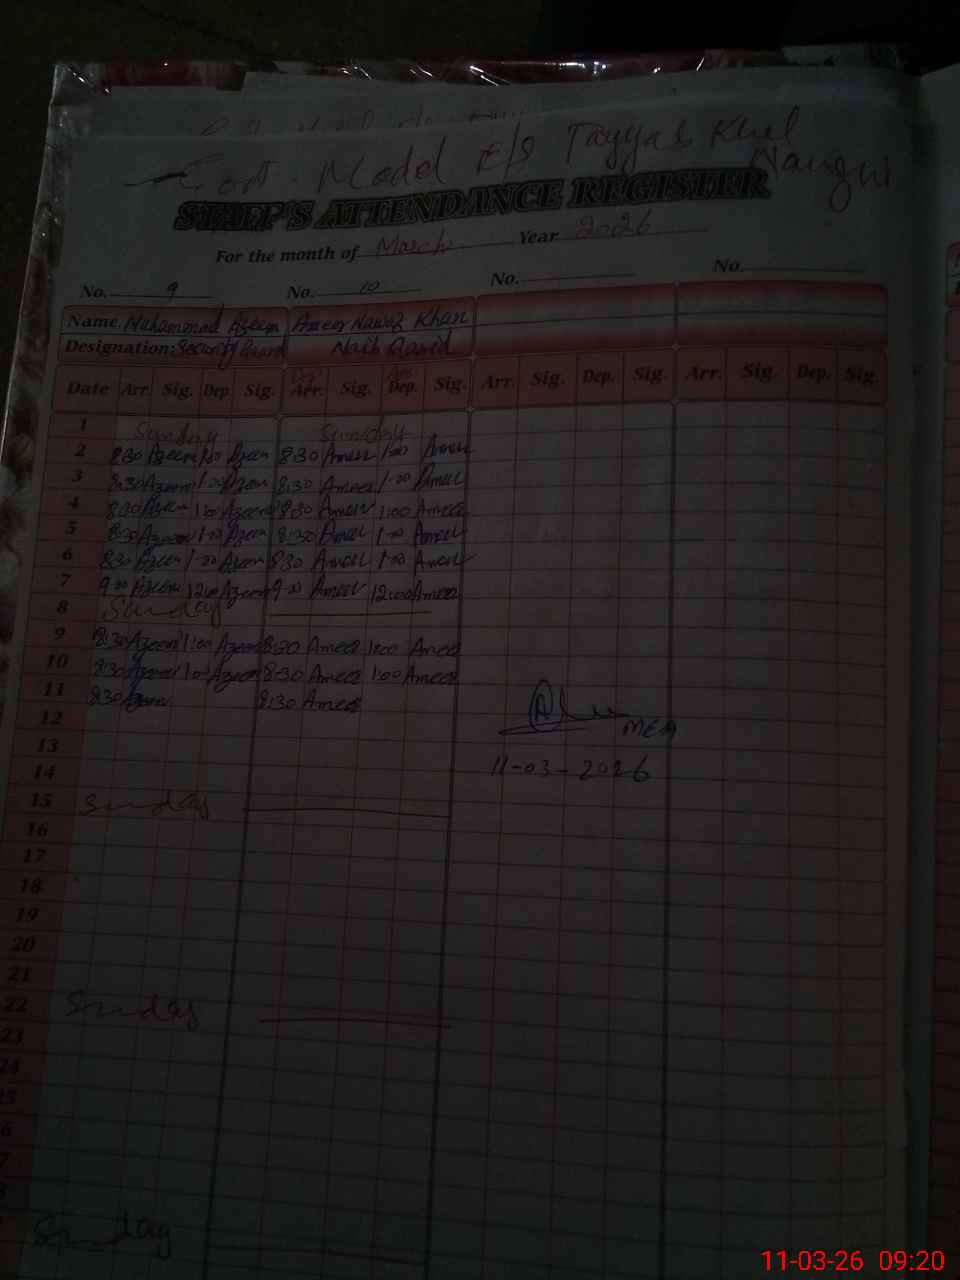 Govt. Model E/S Tayyab Khel
Nangri
STAFF'S ATTENDANCE REGISTER
For the month of March Year 2026
No. 9 No. 10 No. No.
Name. Muhammad Azeem Ameer Nawaz Khan
Designation: Security Guard Naib Qasid
Date Arr. Sig. Dep. Sig. Arr. Sig. Dep. Sig. Arr. Sig. Dep. Sig. Arr. Sig. Dep. Sig.
1 Sunday Sunday
2 8:30 Azeem 1:00 Azeem 8:30 Ameer 1:00 Ameer
3 8:30 Azeem 1:00 Azeem 8:30 Ameer 1:00 Ameer
4 8:30 Azeem 1:00 Azeem 8:30 Ameer 1:00 Ameer
5 8:30 Azeem 1:00 Azeem 8:30 Ameer 1:00 Ameer
6 8:30 Azeem 1:00 Azeem 8:30 Ameer 1:00 Ameer
7 9:00 Azeem 12:00 Azeem 9:00 Ameer 12:00 Ameer
8 Sunday
9 8:30 Azeem 1:00 Azeem 8:30 Ameer 1:00 Ameer
10 8:30 Azeem 1:00 Azeem 8:30 Ameer 1:00 Ameer
11 8:30 Azeem 8:30 Ameer
12 MEA
13
14 11-03-2026
15 Sunday
16
17
18
19
20
21
22 Sunday
23
24
25
6
7
8
Sunday
11-03-26 09:20